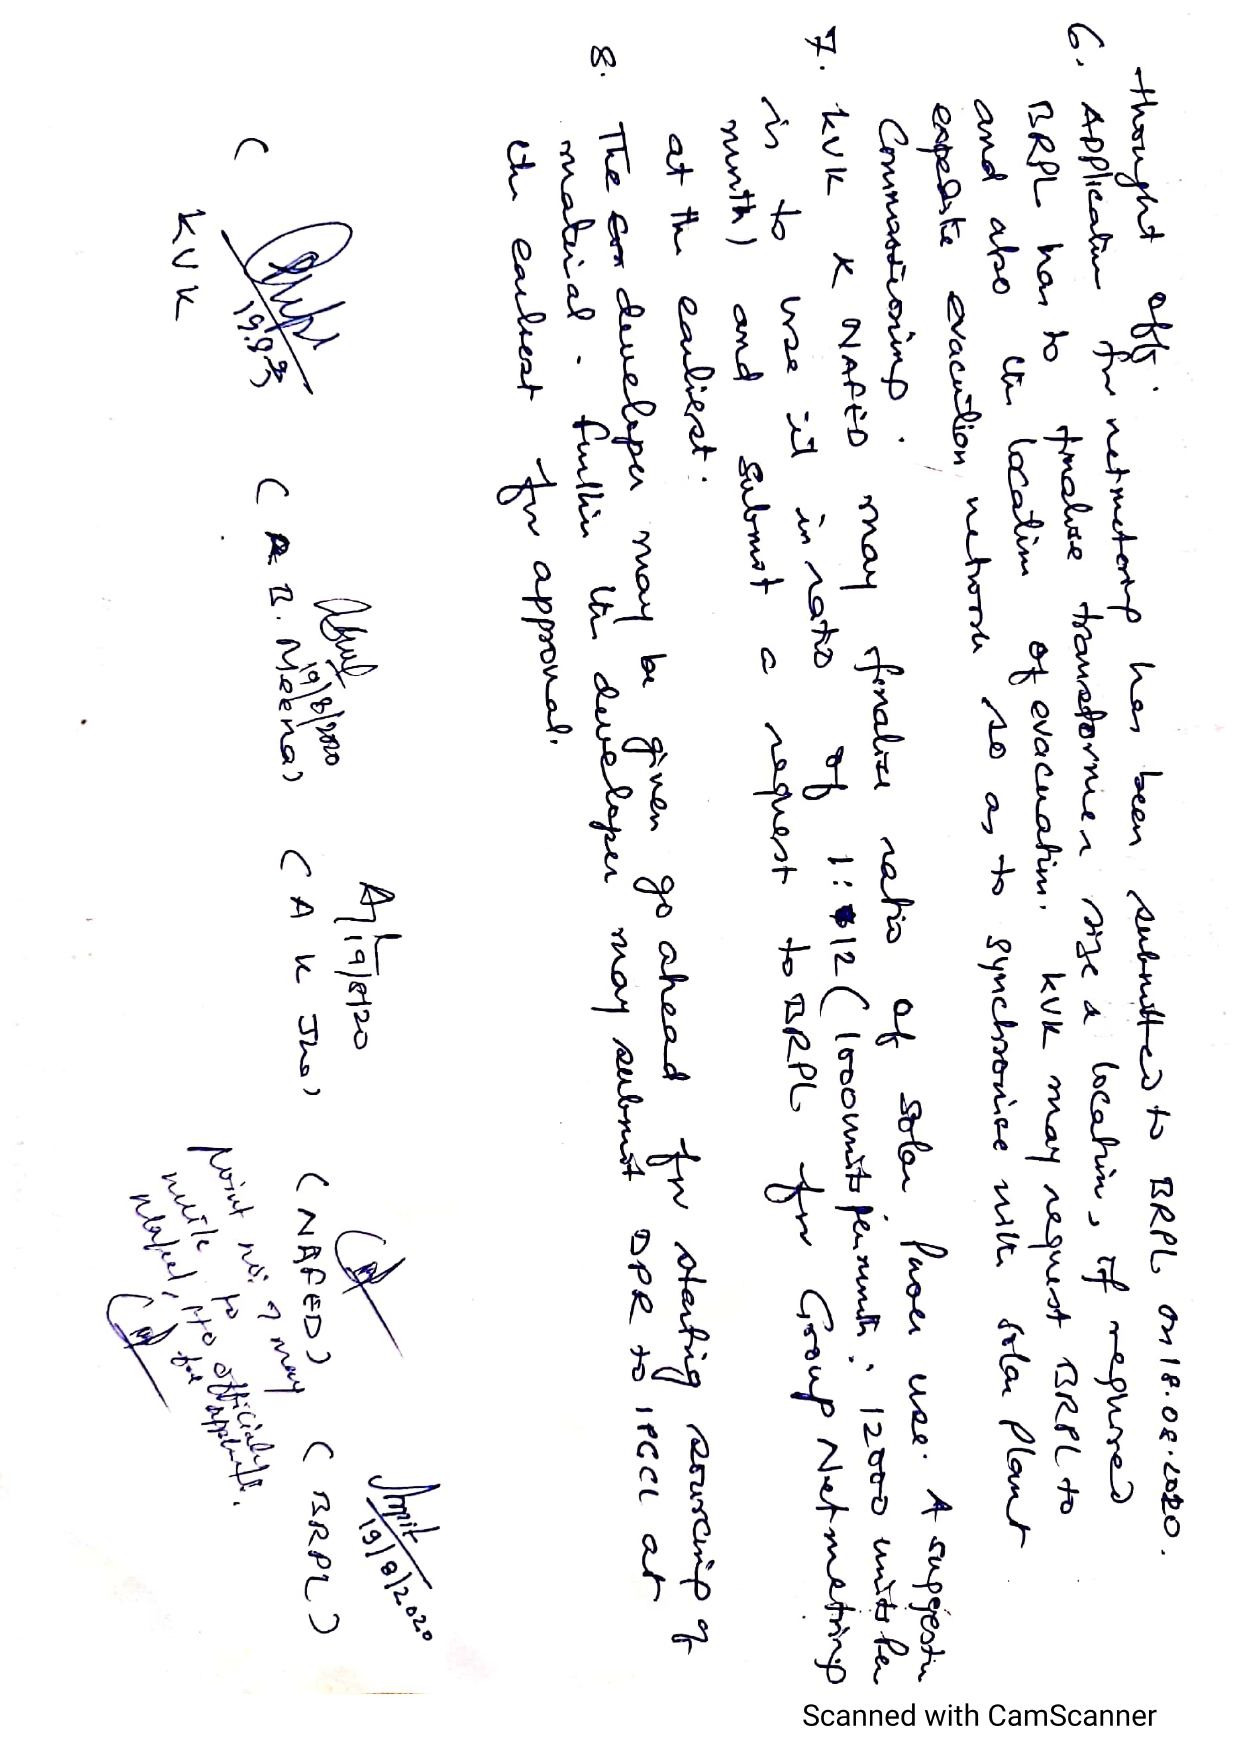 thought off.
6. Application for netmetering has been submitted to BRPL on 18.08.2020.
BRPL has to finalise transformer size & location, if required
and also the location of evacuation. KVK may request BRPL to
expedite evacuation network so as to synchronise with solar plant
Commissioning.
7. KVK & NAFED may finalize ratio of solar Power use. A suggestion
is to use it in ratio of 1:12 (1000 units per month : 12000 units Per
month) and submit a request to BRPL for Group Netmetring
at the earliest.
8. The developer may be given go ahead for starting sourcing of
material. Further the developer may submit DPR to IPGCL at
the earliest for approval.
19.8.20
19/8/2020
19/8/20
Amit
19/8/2020
( KVK
( A B. Meena)
( A K Jha)
( NAFED)
( BRPL)
Point no. 7 may
write to officially
Nafed, HO for